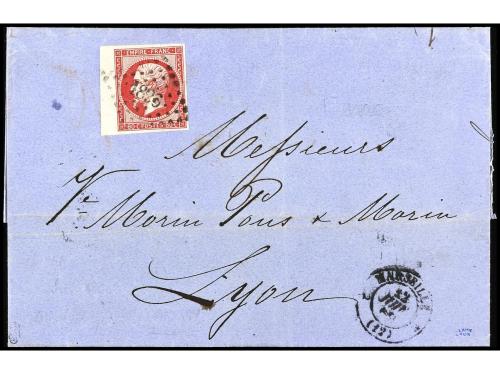 EMPIRE FRANC
80 C POSTES 80 C
Messieurs
Morin Pons & Morin
Lyon
MARSEILLE
22
(12)